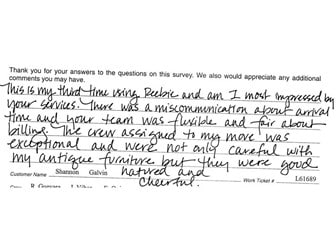 Thank you for your answers to the questions on this survey. We also would appreciate any additional
comments you may have.
This is my third time using Reebie and am I most impressed by
your services. There was a miscommunication about arrival
time and your team was flexible and fair about
billing. The crew assigned to my move was
exceptional and were not only careful with
my antique furniture but they were good
Customer Name Shannon Galvin natured and Work Ticket # L61689
cheerful.